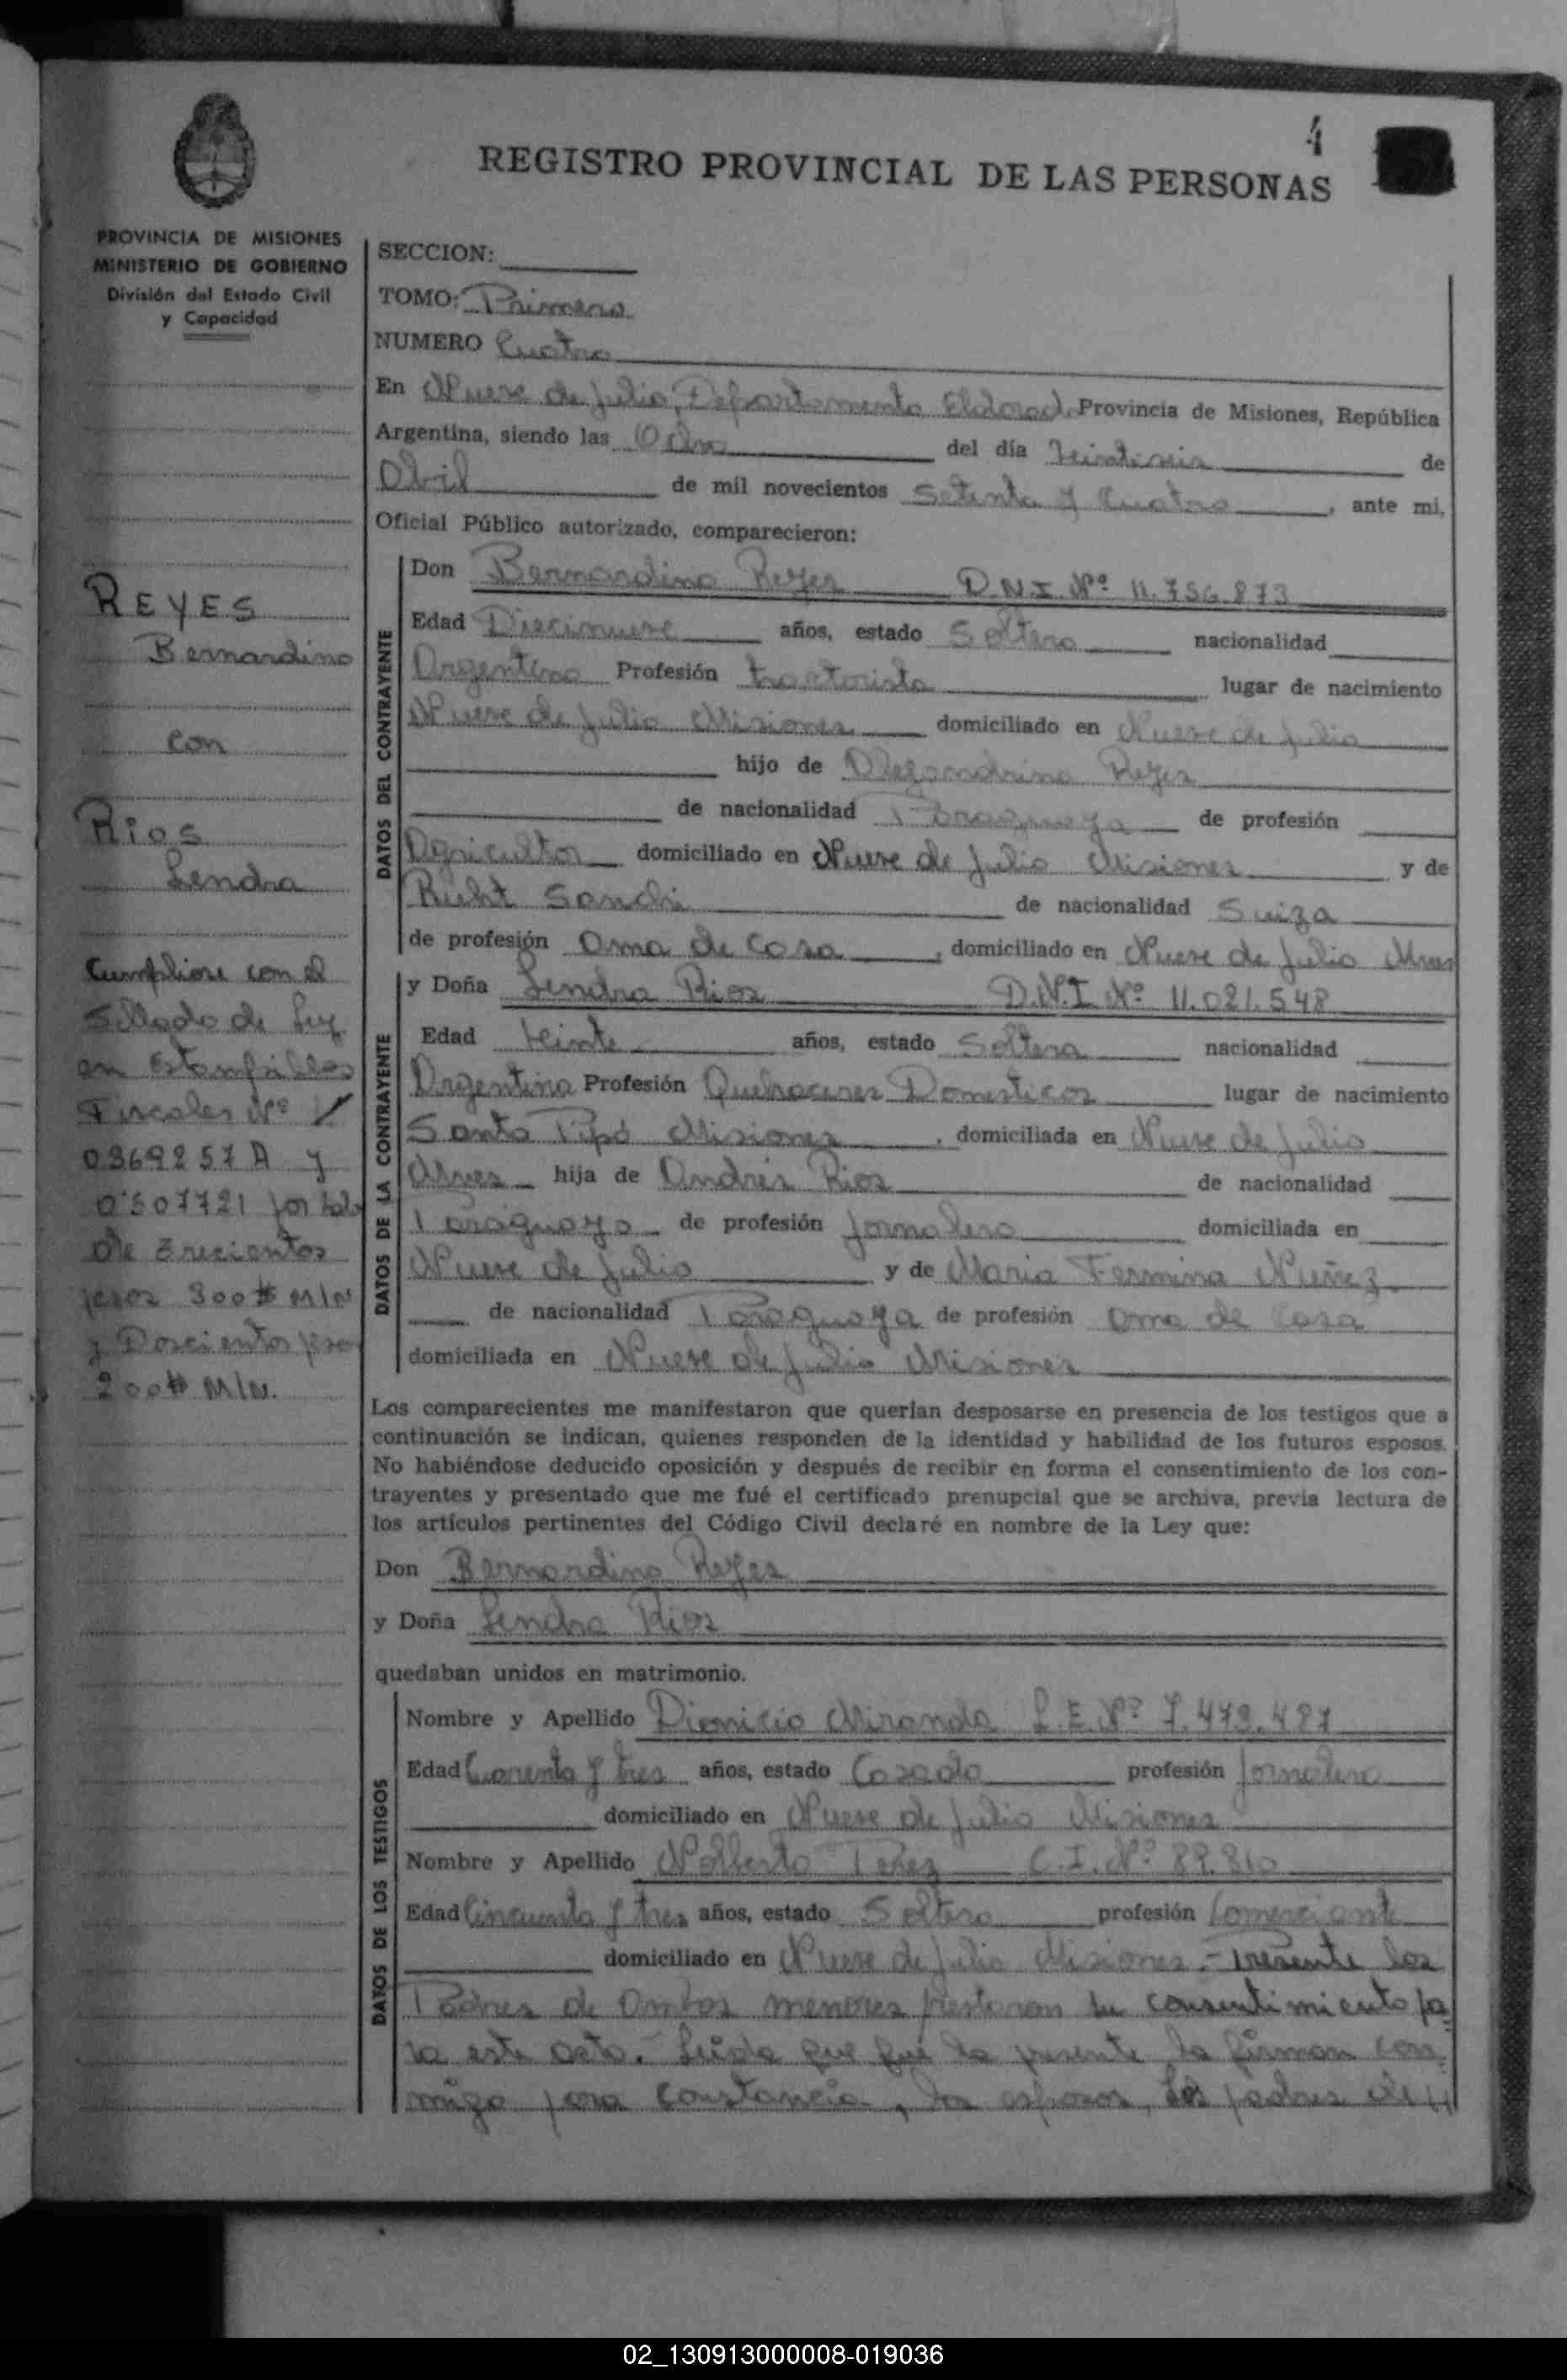 4
REGISTRO PROVINCIAL DE LAS PERSONAS
PROVINCIA DE MISIONES
MINISTERIO DE GOBIERNO
División del Estado Civil
y Capacidad
REYES
Bernardino
con
Rios
Lendra
Cumpliose con el
Sellado de Ley
en Estampillas
Fiscales Nº
0369257 A y
0507721 por
de Trecientos
pesos 300 $ M/N
y Doscientos pesos
200 $ M/N.
SECCION:
TOMO: Primero
NUMERO Cuatro
En Nueve de Julio, Departamento Eldorado Provincia de Misiones, República
Argentina, siendo las Ocho del día Veintiseis de
Abril de mil novecientos Setenta y Cuatro, ante mi,
Oficial Público autorizado, comparecieron:
DATOS DEL CONTRAYENTE
Don Bernardino Reyes D.N.I. Nº 11.756.873
Edad Diecinueve años, estado Soltero nacionalidad
Argentino Profesión tractorista lugar de nacimiento
Nueve de Julio Misiones domiciliado en Nueve de Julio
hijo de Alejandrino Reyes
de nacionalidad Paraguaya de profesión
Agricultor domiciliado en Nueve de Julio Misiones y de
Ruht Sandri de nacionalidad Suiza
de profesión Ama de Casa, domiciliado en Nueve de Julio Mnes
DATOS DE LA CONTRAYENTE
y Doña Lendra Rios D.N.I Nº 11.021.548
Edad Veinte años, estado Soltera nacionalidad
Argentina Profesión Quehaceres Domesticos lugar de nacimiento
Santo Pipó Misiones, domiciliada en Nueve de Julio
Mnes hija de Andrés Rios de nacionalidad
Paraguayo de profesión Jornalero domiciliada en
Nueve de Julio y de Maria Fermina Nuñez
de nacionalidad Paraguaya de profesión Ama de Casa
domiciliada en Nueve de Julio Misiones
Los comparecientes me manifestaron que querían desposarse en presencia de los testigos que a
continuación se indican, quienes responden de la identidad y habilidad de los futuros esposos.
No habiéndose deducido oposición y después de recibir en forma el consentimiento de los con-
trayentes y presentado que me fué el certificado prenupcial que se archiva, previa lectura de
los artículos pertinentes del Código Civil declaré en nombre de la Ley que:
Don Bernardino Reyes
y Doña Lendra Rios
quedaban unidos en matrimonio.
DATOS DE LOS TESTIGOS
Nombre y Apellido Dionicio Miranda L.E. Nº 7.479.487
Edad Cuarenta y tres años, estado Casado profesión Jornalero
domiciliado en Nueve de Julio Misiones
Nombre y Apellido Nolberto Perez C.I. Nº 89.810
Edad Cincuenta y tres años, estado Soltero profesión Comerciante
domiciliado en Nueve de Julio Misiones.- Presente los
Padres de Ambos menores prestaron su consentimiento pa
ra este acto.- Leida que fué la presente la firman con
migo para constancia, los esposos, los padres de
02_130913000008-019036